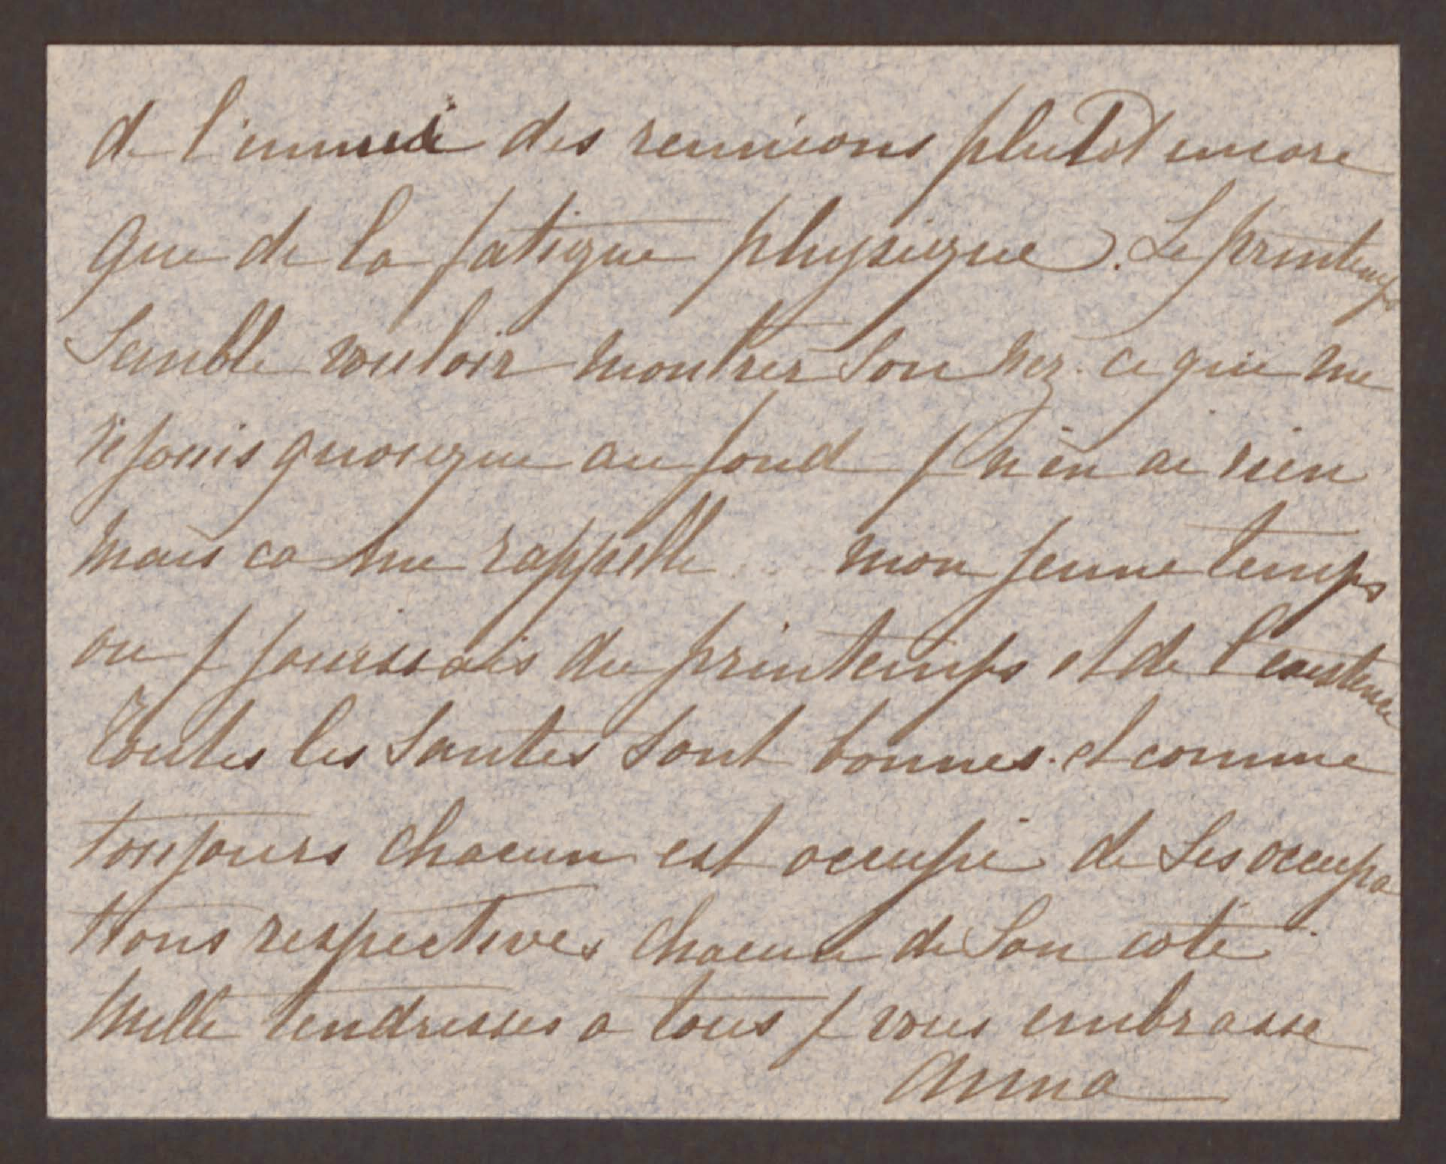 de l'ennui des reunions plutot encore
que de la fatigue physique). Le printemps
semble vouloir montrer son nez. ce qui me
rejouis quoique au fond j n'en ai rien
mais ca me rappelle... mon jeune temps
ou j jouissais du printemps et de l'existence
Toutes les santes sont bonnes. et comme
toujours chacun est occupé de ses occupa
tions respectives chacun de son coté.
Mille tendresses a tous j vous embrasse
Anna